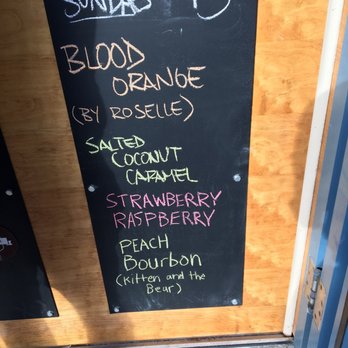 SUNDAY
BLOOD
ORANGE
(BY ROSELLE)
SALTED
COCONUT
CARAMEL
STRAWBERRY
RASPBERRY
PEACH
Bourbon
(Kitten and the
Bear)